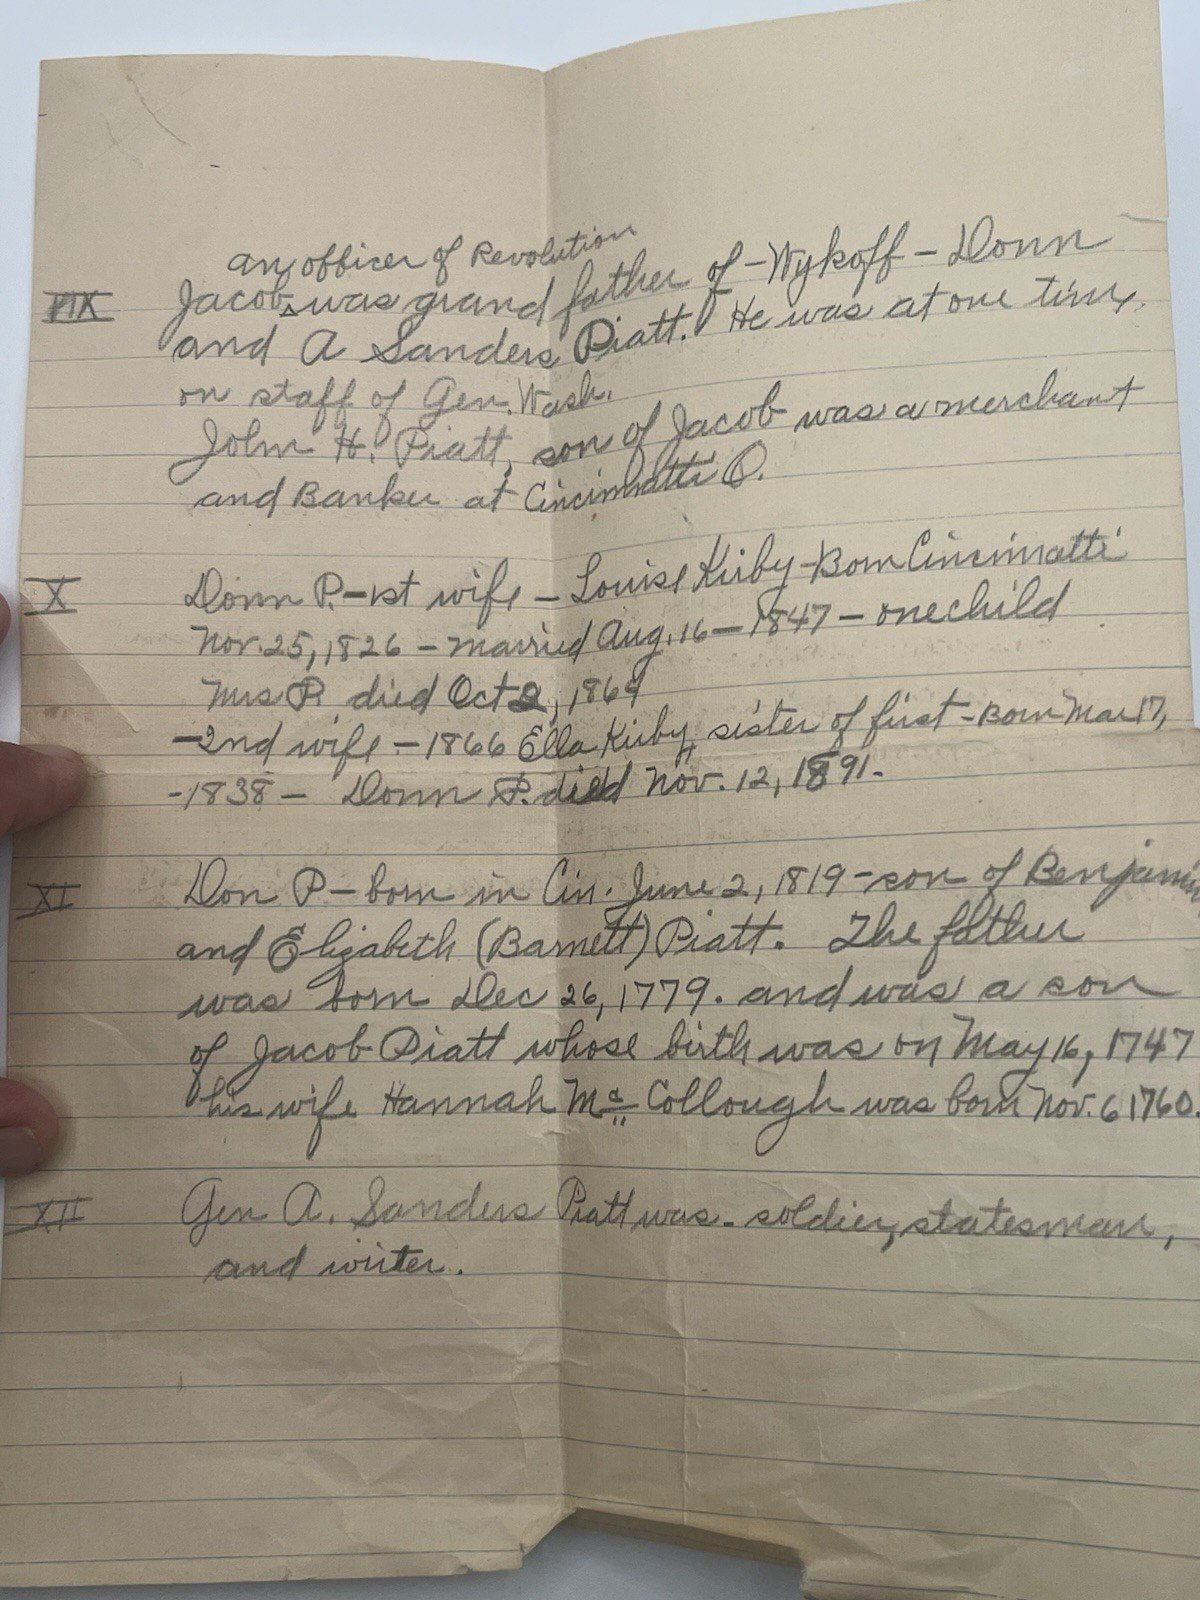 an officer of Revolution
IIX Jacob ^ was grand father of - Wykoff - Donn
and A Sanders Piatt. He was at one time,
on staff of Gen. Wash.
John H. Piatt, son of Jacob was a merchant
and Banker at Cincinnatti O.
X Donn P. - 1st wife - Louise Kirby - Born Cincinnatti
Nov. 25, 1826 - married Aug. 16 - 1847 - one child
Mrs P. died Oct 2, 1864
- 2nd wife - 1866 Ella Kirby, sister of first - Born Mar 17,
- 1838 - Donn P. died Nov. 12, 1891.
XI Don P - born in Cin. June 2, 1819 - son of Benjamin
and Elizabeth (Barnett) Piatt. The father
was born Dec 26, 1779. and was a son
of Jacob Piatt whose birth was on May 16, 1747
his wife Hannah Mc Collough was born Nov. 6 1760.
XII Gen A. Sanders Piatt was - soldier, statesman,
and writer.